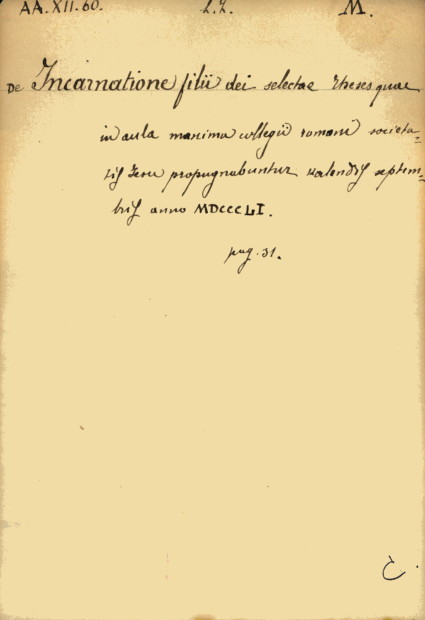 AA.XII.60. L.L. M.
De Incarnatione filii dei selectae theses quae
in aula maxima collegii romani societa-
tis Jesu propugnabuntur kalendis septem-
bris anno MDCCCLI.
pag. 31.